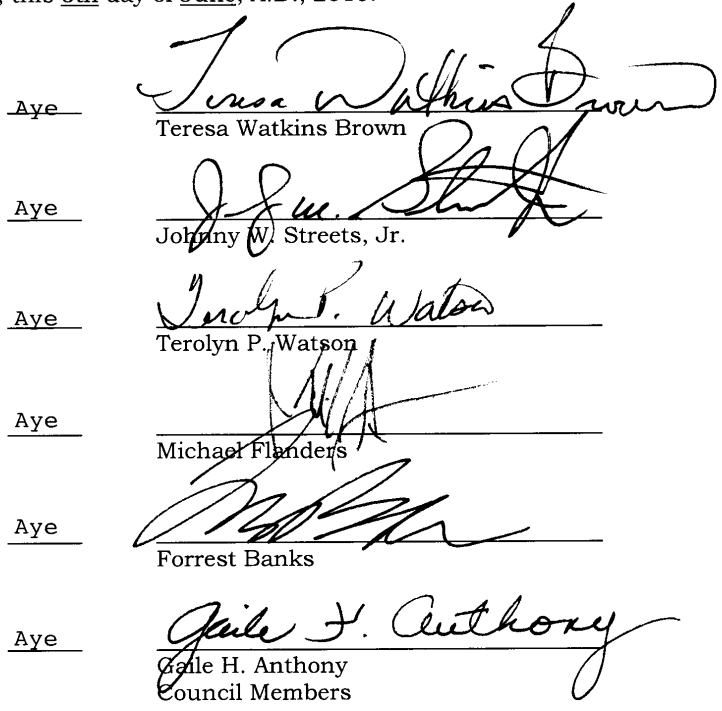 this day of June, A.D.,
Aye Teresa Watkins Brown
Teresa Watkins Brown
Aye
Johnny W. Streets, Jr.
Aye Terolyn P. Watson
Terolyn P. Watson
Aye
Michael Flanders
Aye
Forrest Banks
Aye Gaile H. Anthony
Gaile H. Anthony
Council Members